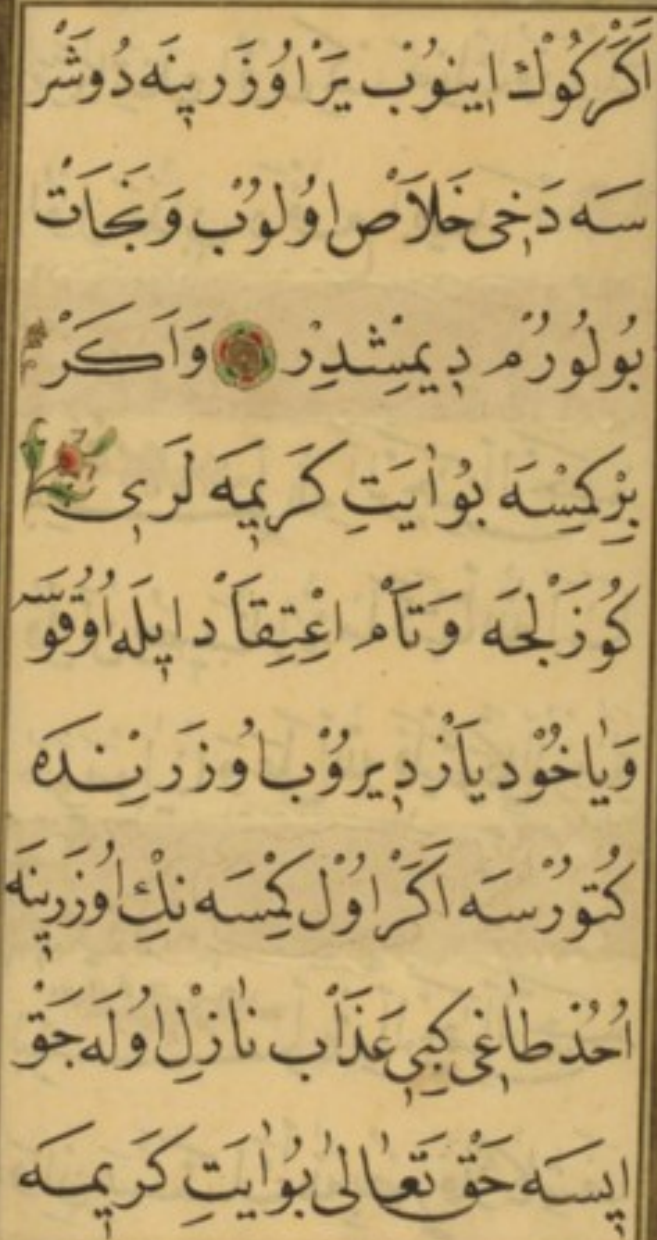 اَكَرْ كُوكْ اِينُوبْ يَرْ اوُزَرِينَه دُوشَرْ
سَه دَخِى خَلاَصْ اوُلُوبْ وَنَجَاتْ
بُولُورُمْ دِيمِشْدِرْ وَاَكَرْ
بِرْ كِمْسَه بُو اٰيَتِ كَرِيمَه لَرِى
كُوزَلْجَه وَتَامْ اِعْتِقَادْ اِيلَه اُوقُوسَه
وَيَاخُودْ يَازْدِيرُوبْ اوُزَرِنْدَه
كُتُورْسَه اَكَرْ اوُلْ كِمْسَه نِكْ اوُزَرِينَه
اُحُدْ طَاغِى كِبِى عَذَابْ نَازِلْ اوُلَه جَقْ
اِيسَه حَقْ تَعَالىٰ بُو اٰيَتِ كَرِيمَه